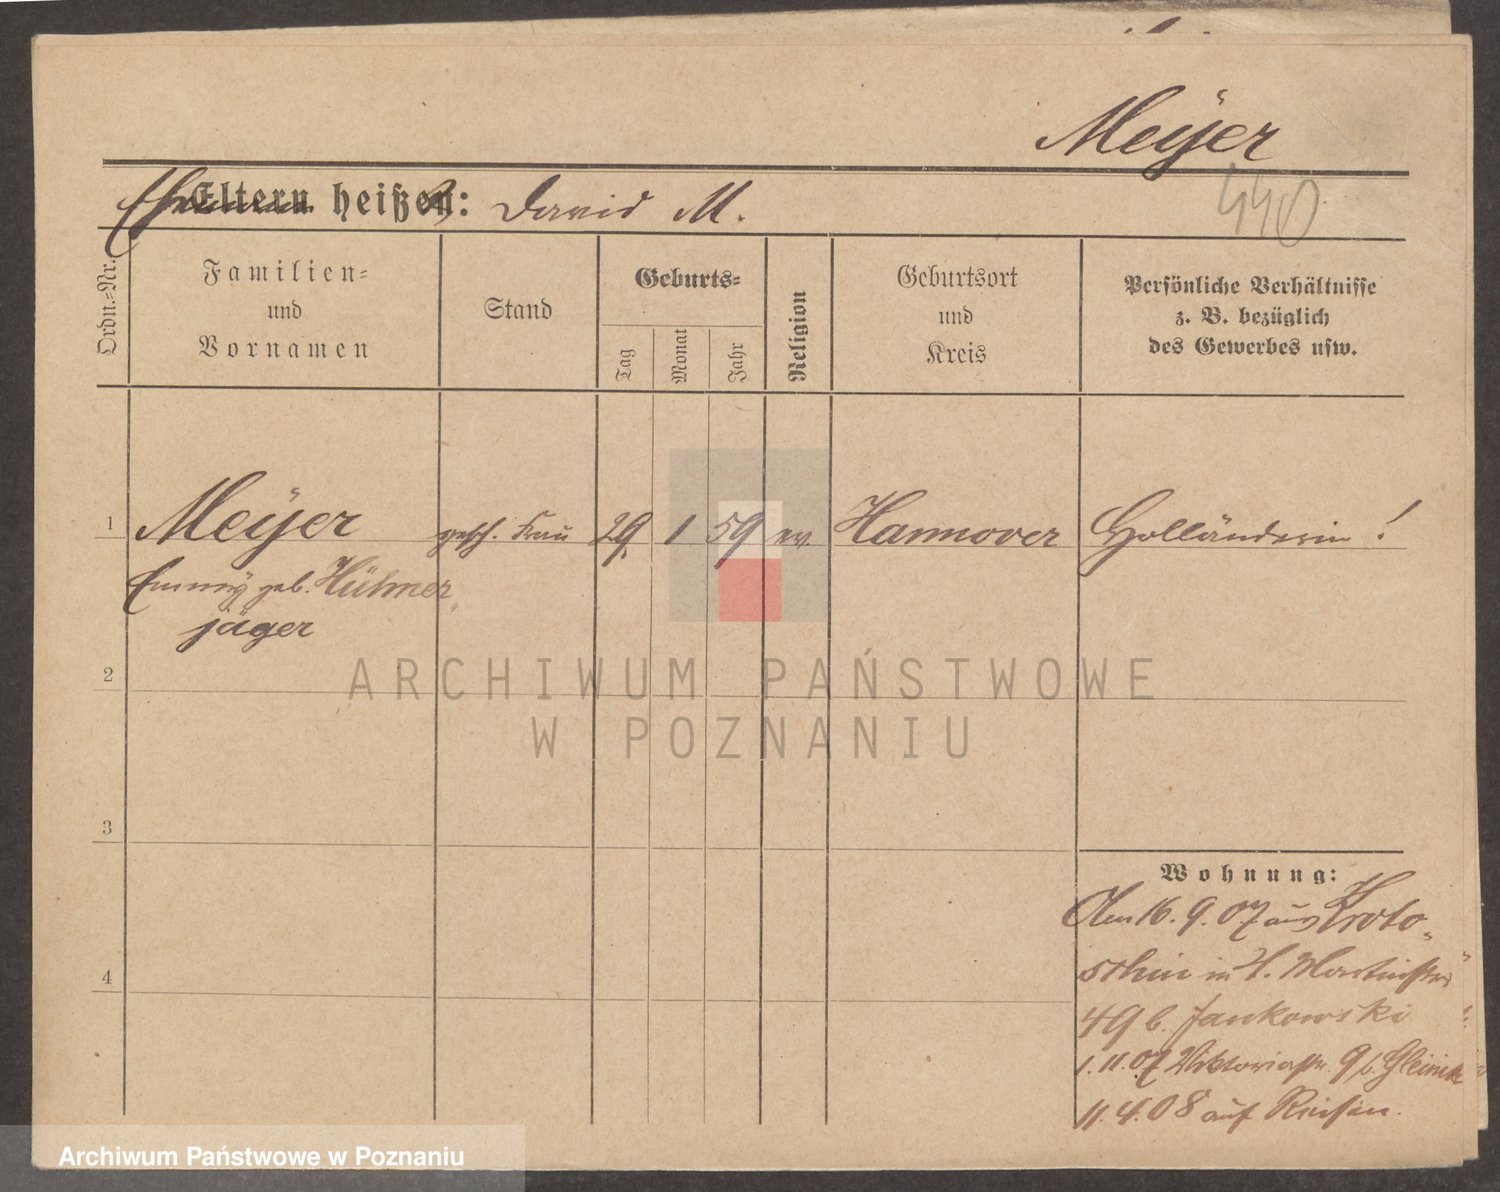 Meÿer
440
Ehemann Eltern heißen: David M.
Ordn.-Nr.
Familien-
und
Vornamen
Stand
Geburts-
Tag
Monat
Jahr
Religion
Geburtsort
und
Kreis
Persönliche Verhältnisse
z. B. bezüglich
des Gewerbes usw.
1 Meÿer gesch. Frau 29. 1 59 ev. Hannover Holländerin!
Emmÿ geb. Hühner„
jäger
2
ARCHIWUM PAŃSTWOWE
W POZNANIU
3
4
Wohnung:
Den 16. 9. 07 aus Kroto„
schin in H. Martinstr
49 b. Jankowski
1. 11. 07 Viktoriastr. 9 b.
11. 4. 08 auf Reisen.
Archiwum Państwowe w Poznaniu